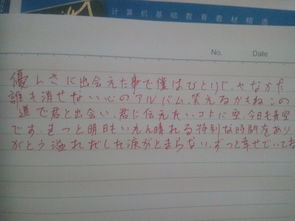 计算机基础教育教材精选
No.
Date
優しさに出会えた事で僕はひとりじゃなかた
誰も消せない心のアルバム、笑えるかもね この
道で君と出会い、君に伝えたい、コトに空、今日も青空
です。きっと明日もいえん晴れる 特別な時間をあり
がとう 溢れだした涙がとまらない、ずっと幸せでいてね